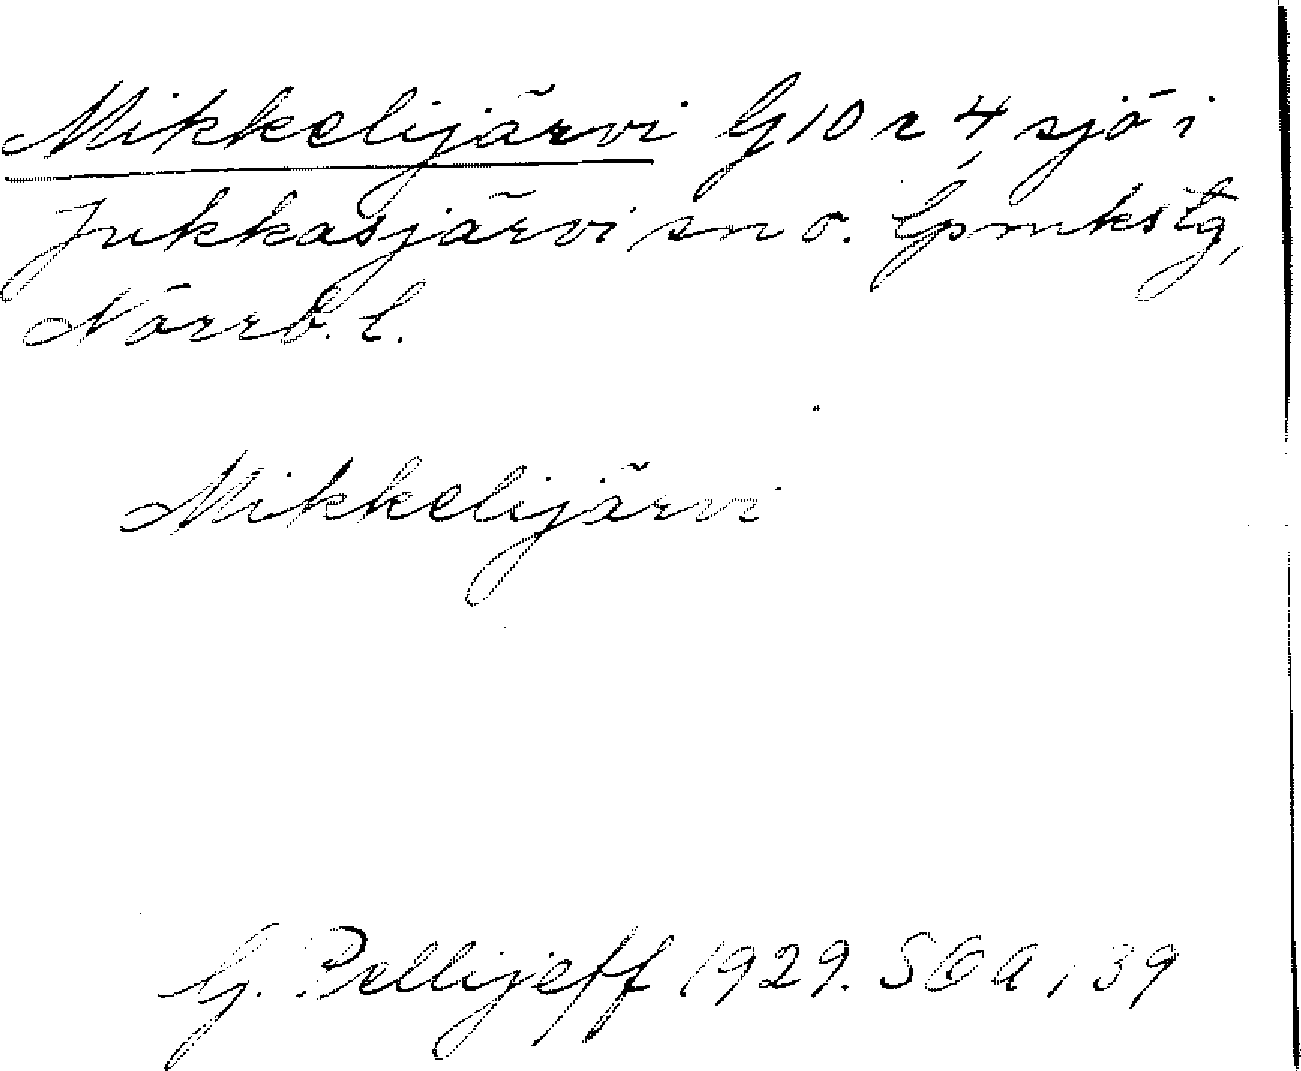 Mikkelijärvi G 10 r 4 sjö i
Jukkasjärvi sn o. lpmkstg,
Norrb. l.
Mikkelijärvi
G. Pellijeff 1929. SOA, 39